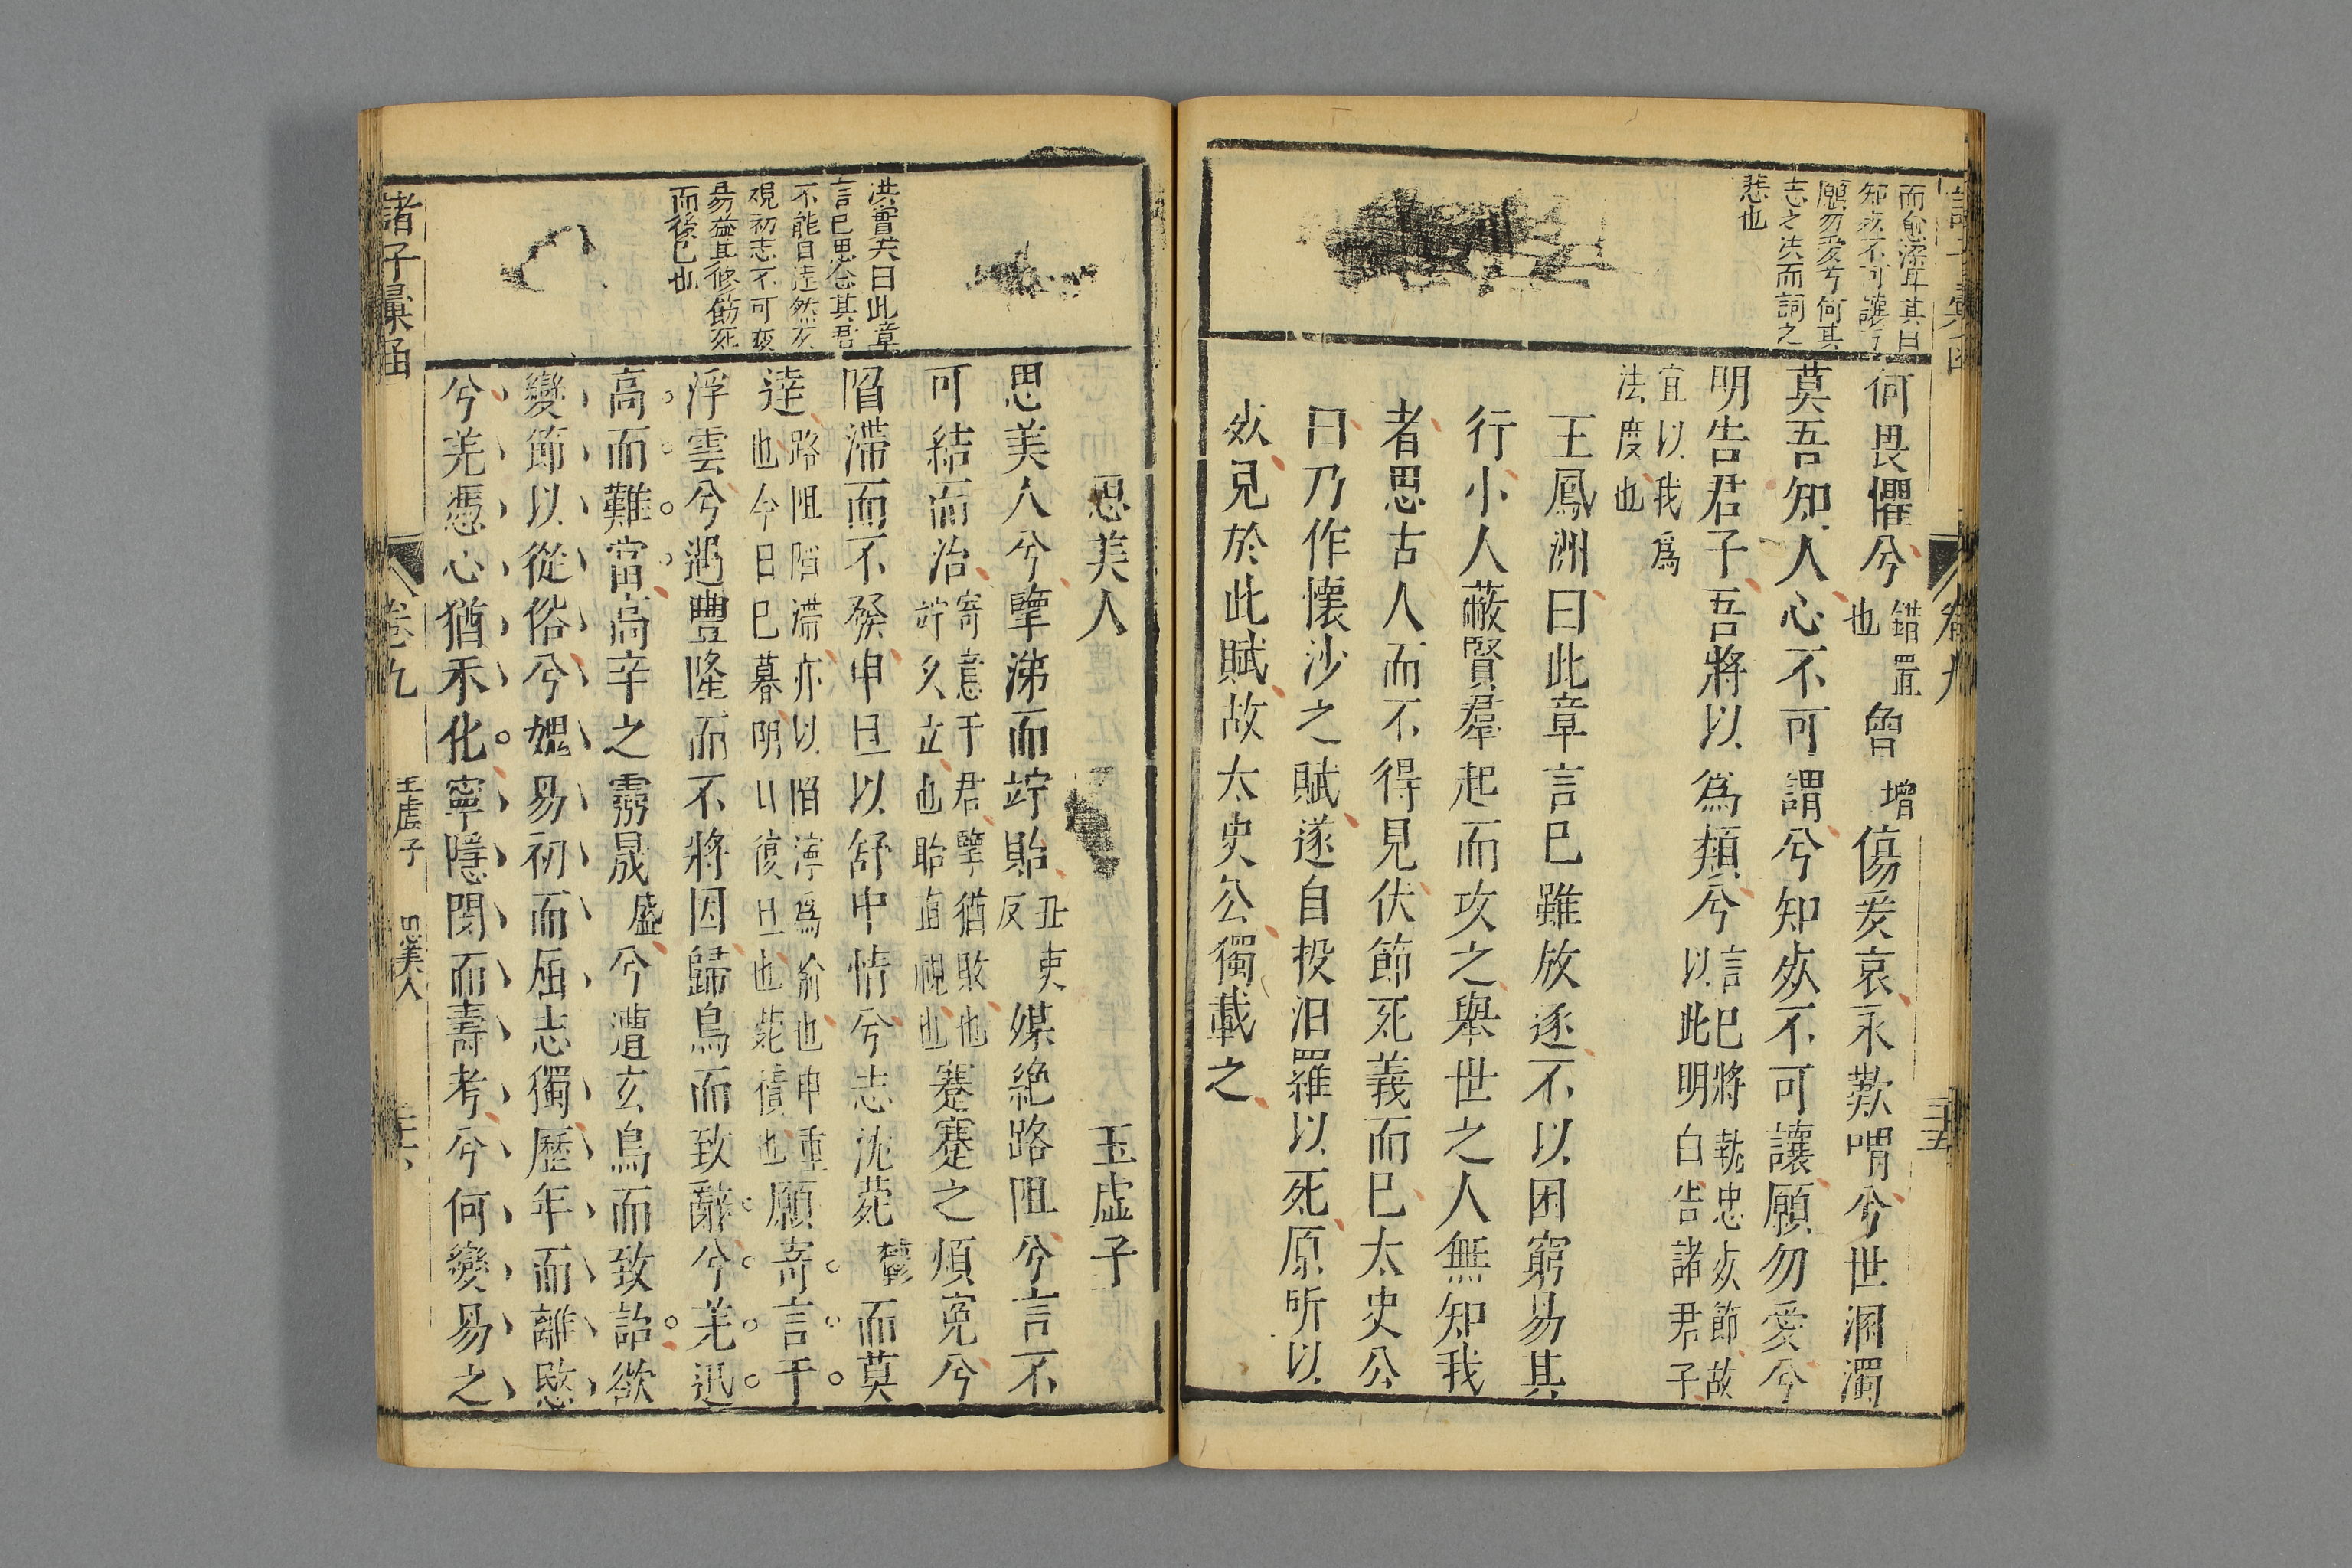 而愈深耳其曰
知死不可讓
願勿愛兮何其
志之决而詞之
悲也
何畏懼兮錯置也曾增傷爰哀永歎喟兮世溷濁
莫吾知人心不可謂兮知死不可讓願勿愛兮
明告君子吾將以為類兮言已將執忠死節故以此明白告諸君子
宜以我為法度也
王鳳洲曰此章言已雖放逐不以困窮易其
行小人蔽賢羣起而攻之舉世之人無知我
者思古人而不得見伏節死義而已太史公
曰乃作懷沙之賦遂自投汨羅以死原所以
死見於此賦故太史公獨載之
卷九
洪曾奕曰此章
言已思念其君
不能自達然亥
視初志不可變
易益其修飭死
而後已也
思美人
玉虛子
思美人兮擥涕而竚眙丑吏反媒絕路阻兮言不
可結而詒寄意于君擥猶收也竚久立也眙直視也蹇蹇之煩寃兮
陷滯而不發申旦以舒中情兮志沈菀鬱而莫
達路阻陷滯亦以陷濘為喻也申重也今日已暮明日復旦也菀積也願寄言于
浮雲兮遇豐隆而不將因歸鳥而致辭兮羌迅
高而難當高辛之靈晟盛兮遭玄鳥而致詒欲
變節以從俗兮媿易初而屈志獨歷年而離愍
兮羌憑心猶未化寧隱閔而壽考兮何變易之
諸子彙函
卷九
玉虛子
思美人